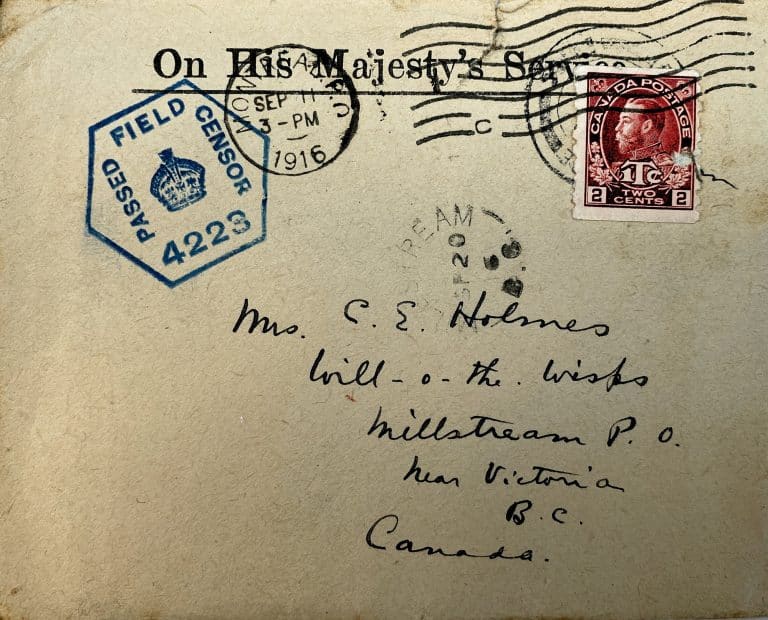 On His Majesty's Service
MONTREAL P.Q
SEP 11
3 - PM
1916
C
PASSED FIELD CENSOR
4223
CANADA POSTAGE
1Tc
2 TWO CENTS 2
STREAM
SP 20
B.C.
Mrs. C. E. Holmes
Will-o-the-Wisps
Millstream P. O.
near Victoria
B.C.
Canada.